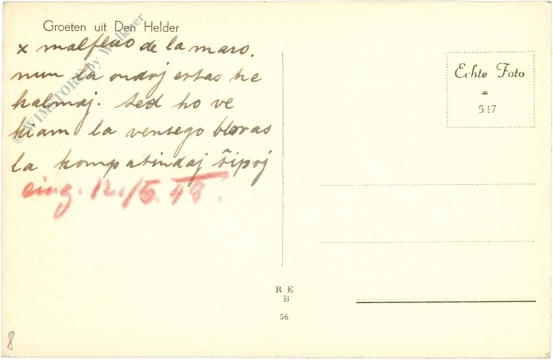 Groeten uit Den Helder
x malfluo de la maro.
nun la ondoj estas tre
kalmaj. sed ho ve
kiam la ventego blovas
la kompatindaj ŝipoj
eing. 12./5. 48.
Echte Foto
=
517
R E
B
56
8
© WIMSTORE by Wolkster